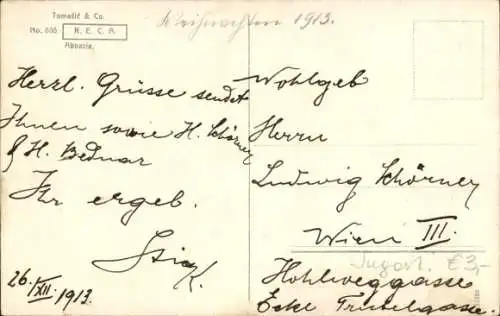 Tomašić & Co.
No. 606 N.E.C.A.
Abbazia.
Weihnachten 1913.
Herzl. Grüsse sendet
Ihnen sowie H. Schörney
& H. Bednar
Ihr ergeb.
K.
26./XII. 1913.
Wohlgeb
Herrn
Ludwig Schörney
Wien III.
Jugosl. €3,-
Hohlweggasse
Ecke